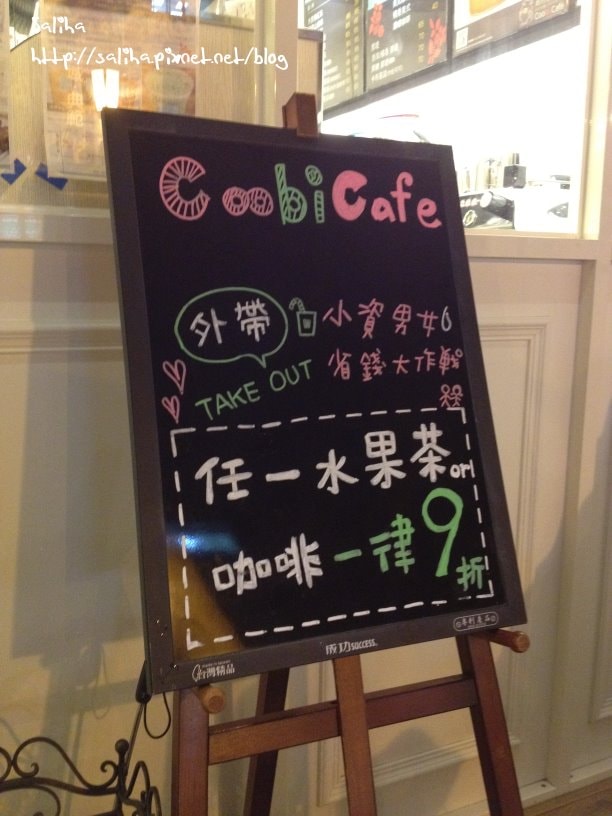 Saliha
http://salihapixnet.net/blog
Coobi Cafe
外帶
小資男女
TAKE OUT
省錢大作戰
任一水果茶or
咖啡一律9折
成功success
台灣精品
專利產品